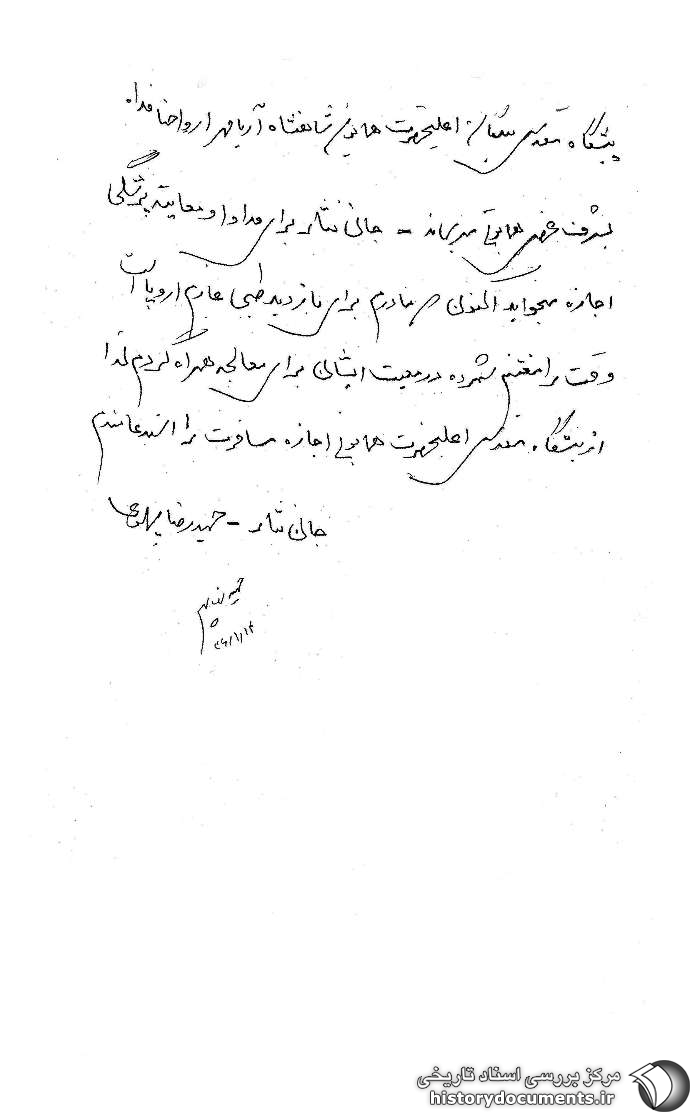 پیشگاه مقدس بندگان اعلیحضرت همایون شاهنشاه آریامهر ارواحنا فداه
بشرف عرض همایونی میرساند - جان نثار برای مداوا و معاینه پزشگی
اجازه میخواهد اکنون که مادرم برای بازدید طبی عازم اروپا است
وقت را مغتنم شمرده در معیت ایشان برای معالجه همراه گردم لذا
از پیشگاه مقدس اعلیحضرت همایونی اجازه مسافرت را استدعا مندم
جان نثار - حمیدرضا پهلوی
مرکز بررسی اسناد تاریخی
historydocuments.ir